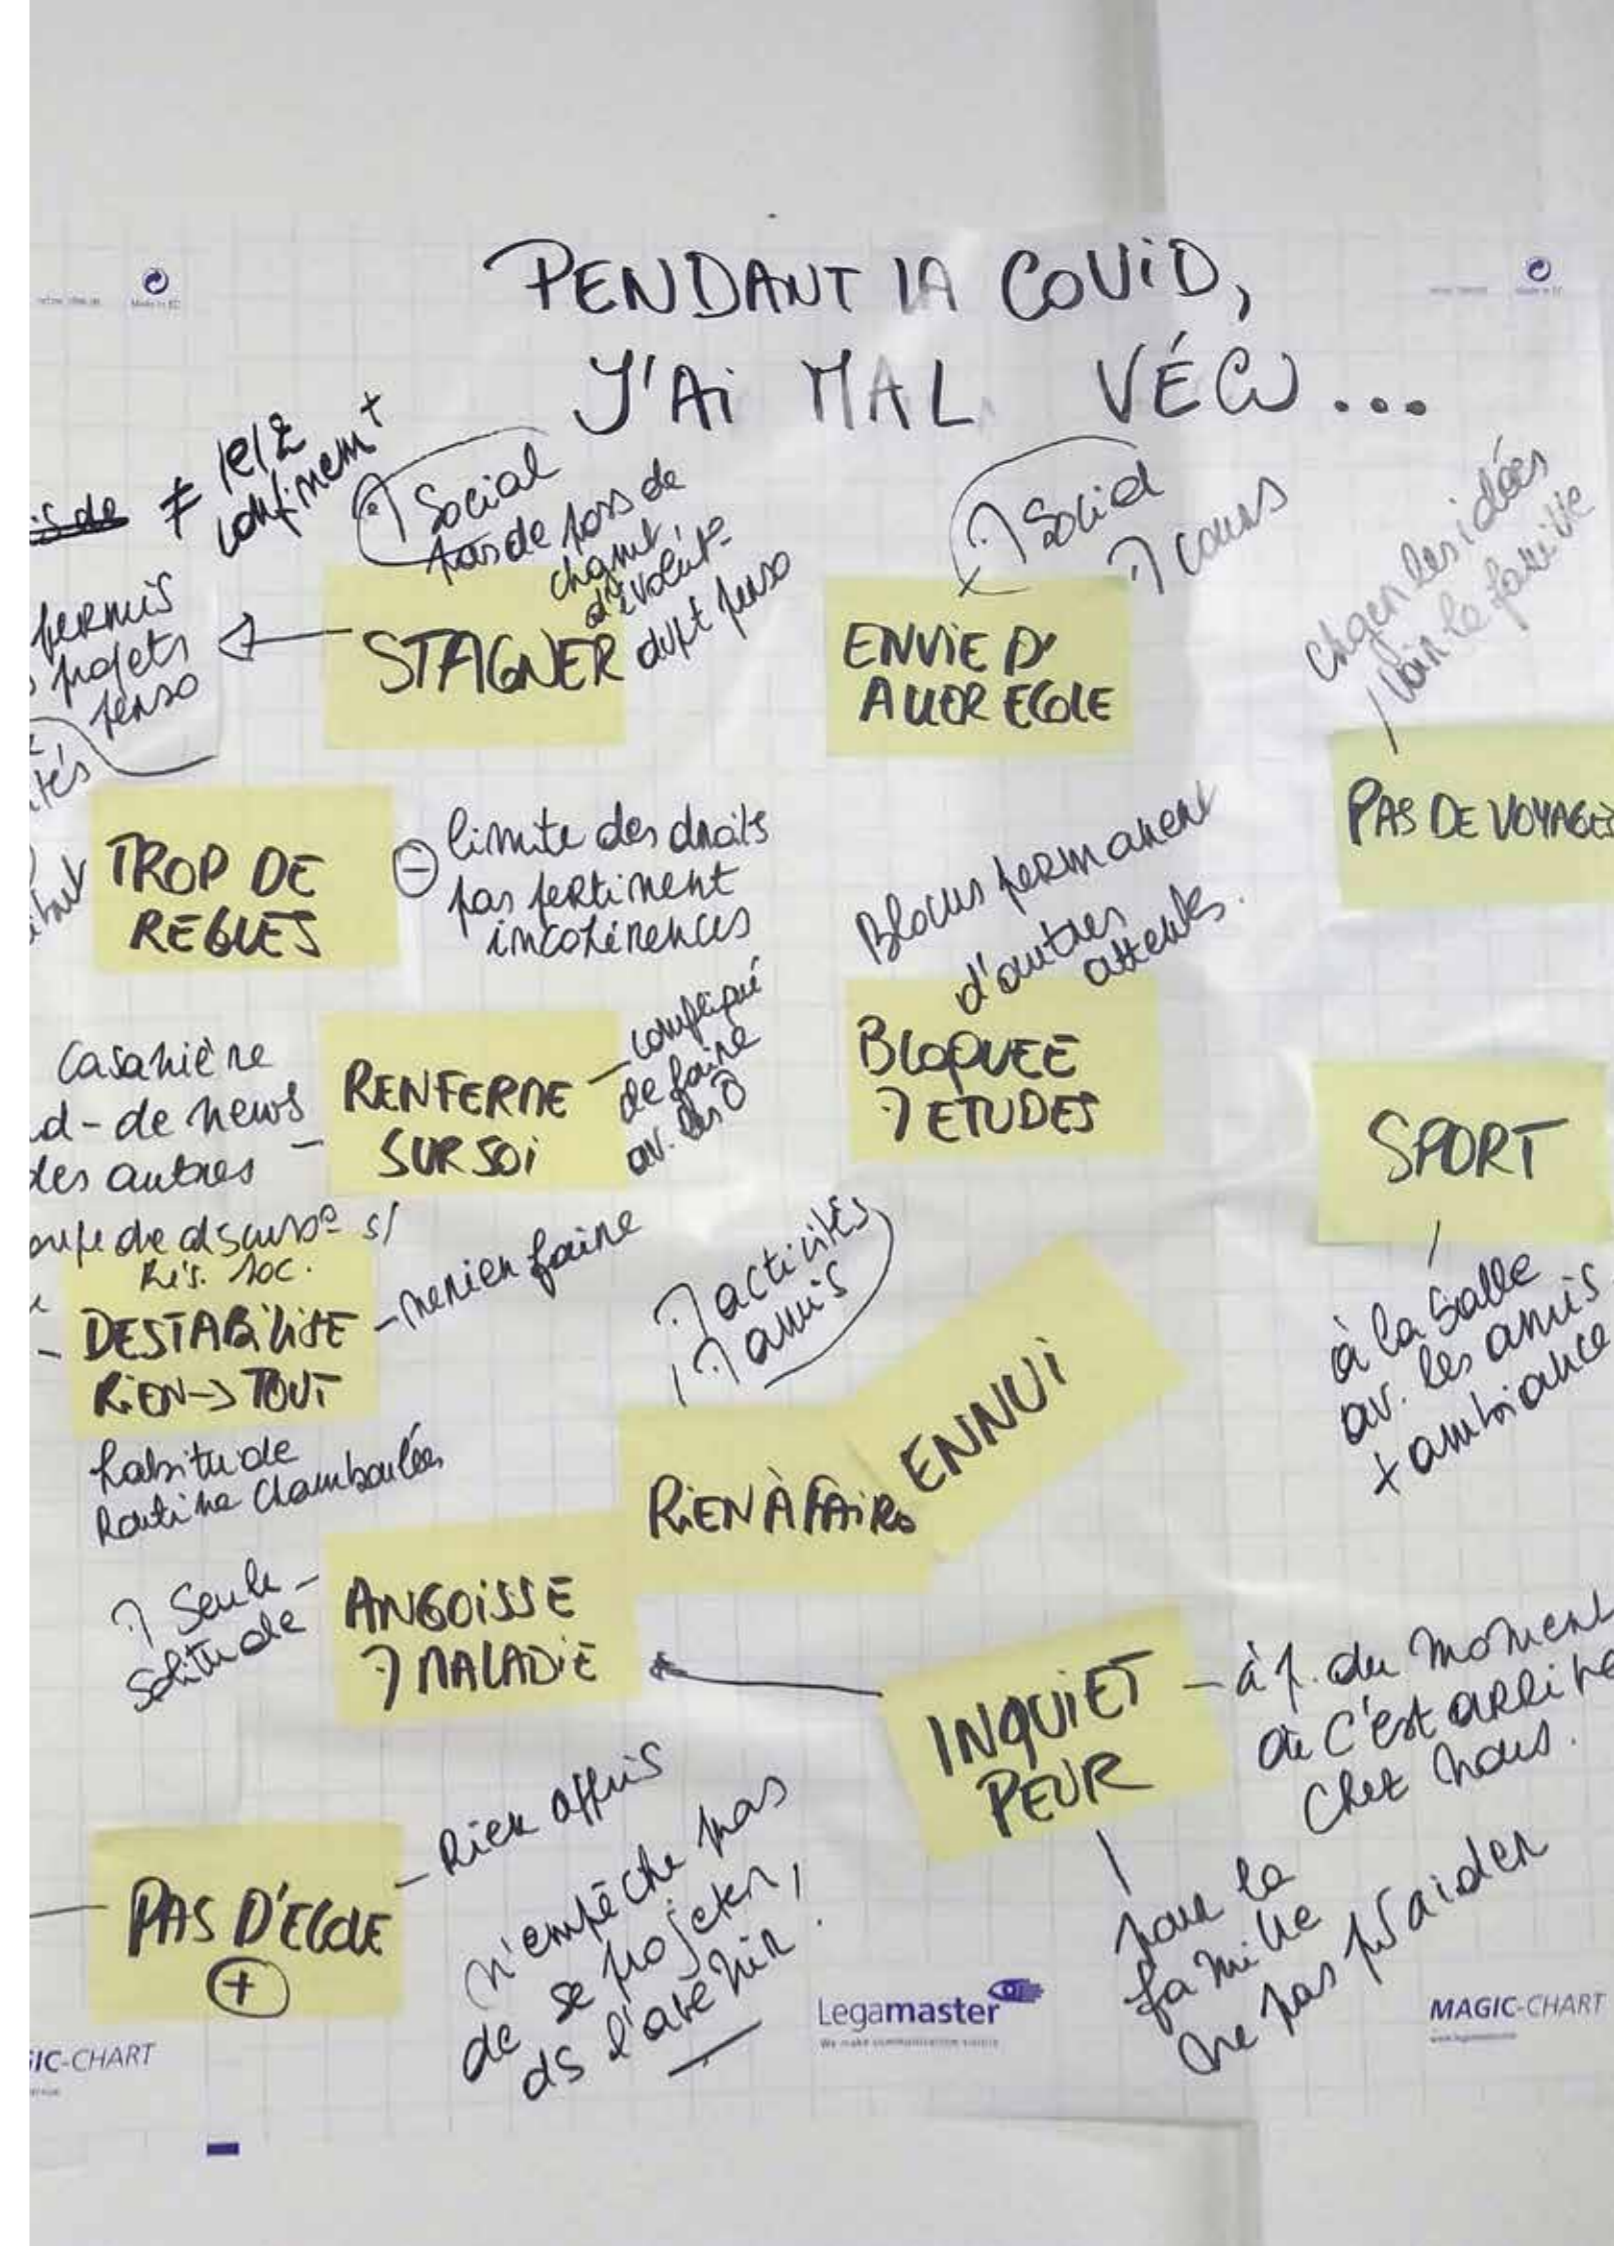 PENDANT LA COVID,
J'AI MAL VÉCU...
≠ 1e/2
confinemt
Social
pas de
chgmt
d'évolut°
dvpt perso
STAGNER
permis
projets
perso
Social
cours
ENVIE D'
ALLER ECOLE
chger les idées
voir la famille
PAS DE VOYAGES
TROP DE
REGLES
⊖ limite des droits
pas pertinent
incohérences
Blocus permanent
d'autres
attentes.
BLOQUEE
ETUDES
casanière
de news
des autres
RENFERME
SUR SOI
compliqué
de faire
av. les
SPORT
à la salle
av. les amis
+ ambiance
de discuss° s/
rés. soc.
DESTABILISE
RIEN → TOUT
- ne rien faire
habitude
Routine chamboulées
activités
amis
RIEN À FAIRE
ENNUI
Seule -
solitude
ANGOISSE
MALADIE
INQUIET
PEUR
- à p. du moment
où c'est arrivé
chez nous.
pour la
famille
ne pas pv aider
PAS D'ECOLE
+
- Rien appris
n'empêche pas
de se projeter,
ds l'avenir.
Legamaster
We make communication visible
MAGIC-CHART
IC-CHART
Made in EC